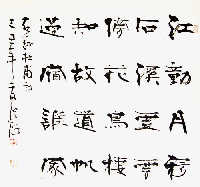 江動月移
石溪虛雲
傍花鳥棲
知故道帆
過宿誰家
杜甫